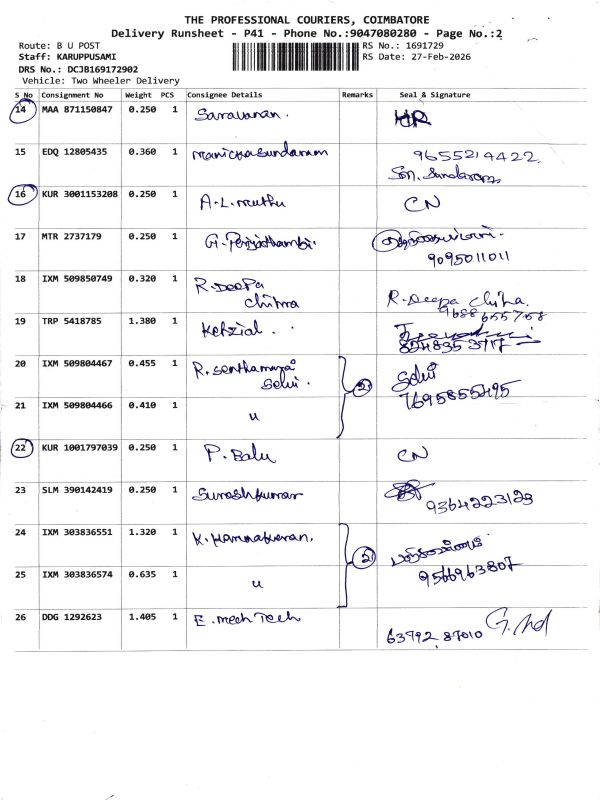 THE PROFESSIONAL COURIERS, COIMBATORE
Delivery Runsheet - P41 - Phone No.:9047080280 - Page No.:2
Route: B U POST
RS No.: 1691729
Staff: KARUPPUSAMI
RS Date: 27-Feb-2026
DRS No.: DCJB169172902
Vehicle: Two Wheeler Delivery
S No Consignment No Weight PCS Consignee Details Remarks Seal & Signature
14 MAA 871150847 0.250 1 Saravanan. HR
15 EDQ 12805435 0.360 1 Manickasundaram 9655214422
Son. Sundaram
16 KUR 3001153208 0.250 1 A.L. Muthu CN
17 MTR 2737179 0.250 1 G. Periyathambi.
9095011011
18 IXM 509850749 0.320 1 R. Deepa
Chitra R. Deepa Chitra.
9688655758
19 TRP 5418785 1.380 1 Kehzial..
20 IXM 509804467 0.455 1 R. Senthamarai
Selvi. 2 Selvi
7695855495
21 IXM 509804466 0.410 1 "
22 KUR 1001797039 0.250 1 P. Balu CN
23 SLM 390142419 0.250 1 Sureshkumar
9364223123
24 IXM 303836551 1.320 1 K. Karunakaran. 2
9566963807
25 IXM 303836574 0.635 1 "
26 DDG 1292623 1.405 1 E. Mech Tech
63792 87010